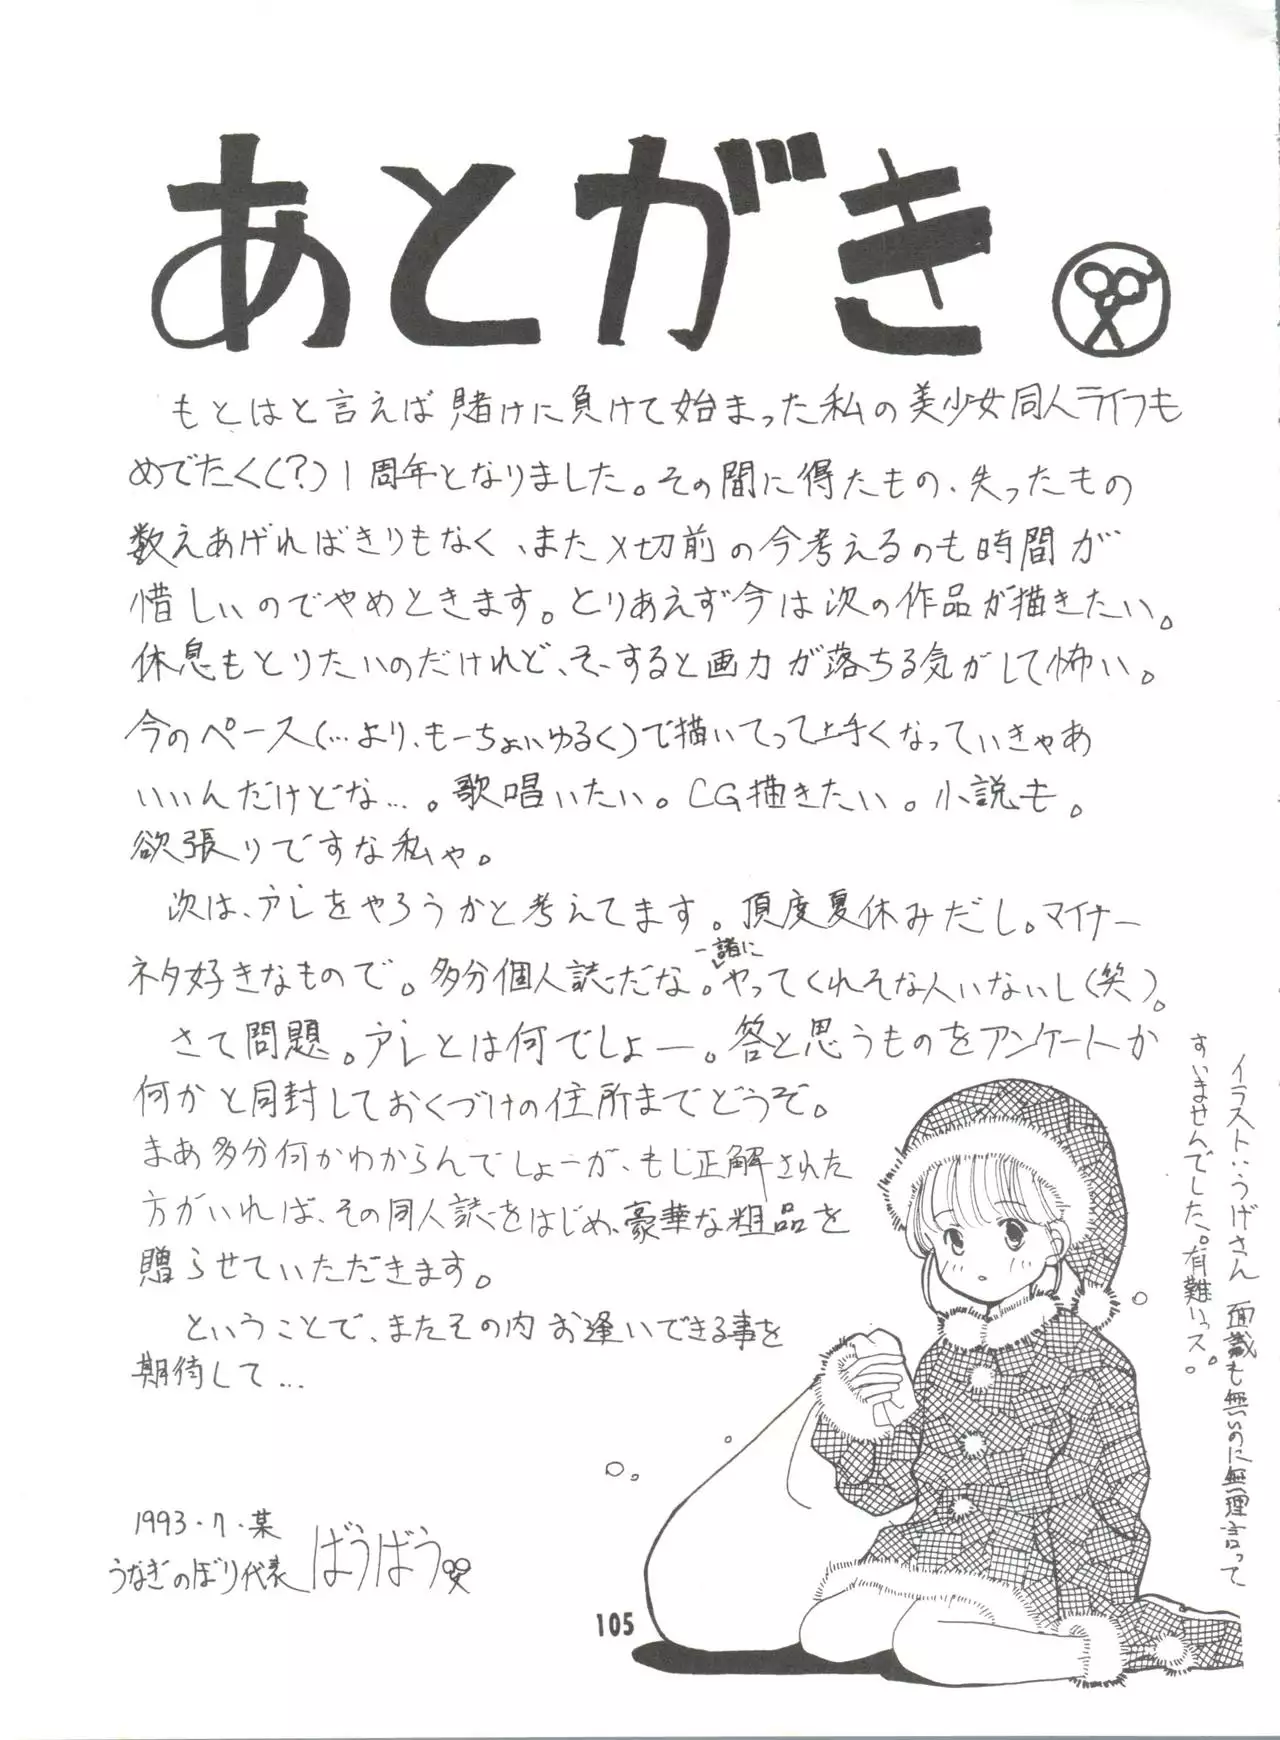 あとがき
もとはと言えば賭けに負けて始まった私の美少女同人ライフも
めでたく(?)1周年となりました。その間に得たもの、失ったもの
数えあげればきりもなく、また〆切前の今考えるのも時間が
惜しいのでやめときます。とりあえず今は次の作品が描きたい。
休息もとりたいのだけれど、そーすると画力が落ちる気がして怖い。
今のペース(…より、もーちょいゆるく)で描いてって上手くなっていきゃあ
いいんだけどな…。歌唱いたい。CG描きたい。小説も。
欲張りですな私ゃ。
次は、アレをやろうかと考えてます。頂度夏休みだし。マイナー
ネタ好きなもので。多分個人誌だな。一諸にやってくれそな人いないし(笑)。
さて問題。アレとは何でしょー。答と思うものをアンケートか
何かと同封しておくづけの住所までどうぞ。
まあ多分何かわからんでしょーが、もし正解された
方がいれば、その同人誌をはじめ、豪華な粗品を
贈らせていただきます。
ということで、またその内お逢いできる事を
期待して…
1993・7・某
うなぎのぼり代表 ばうばう
イラスト:うげさん 面識も無いのに無理言って
すいませんでした。有難いっス。
105